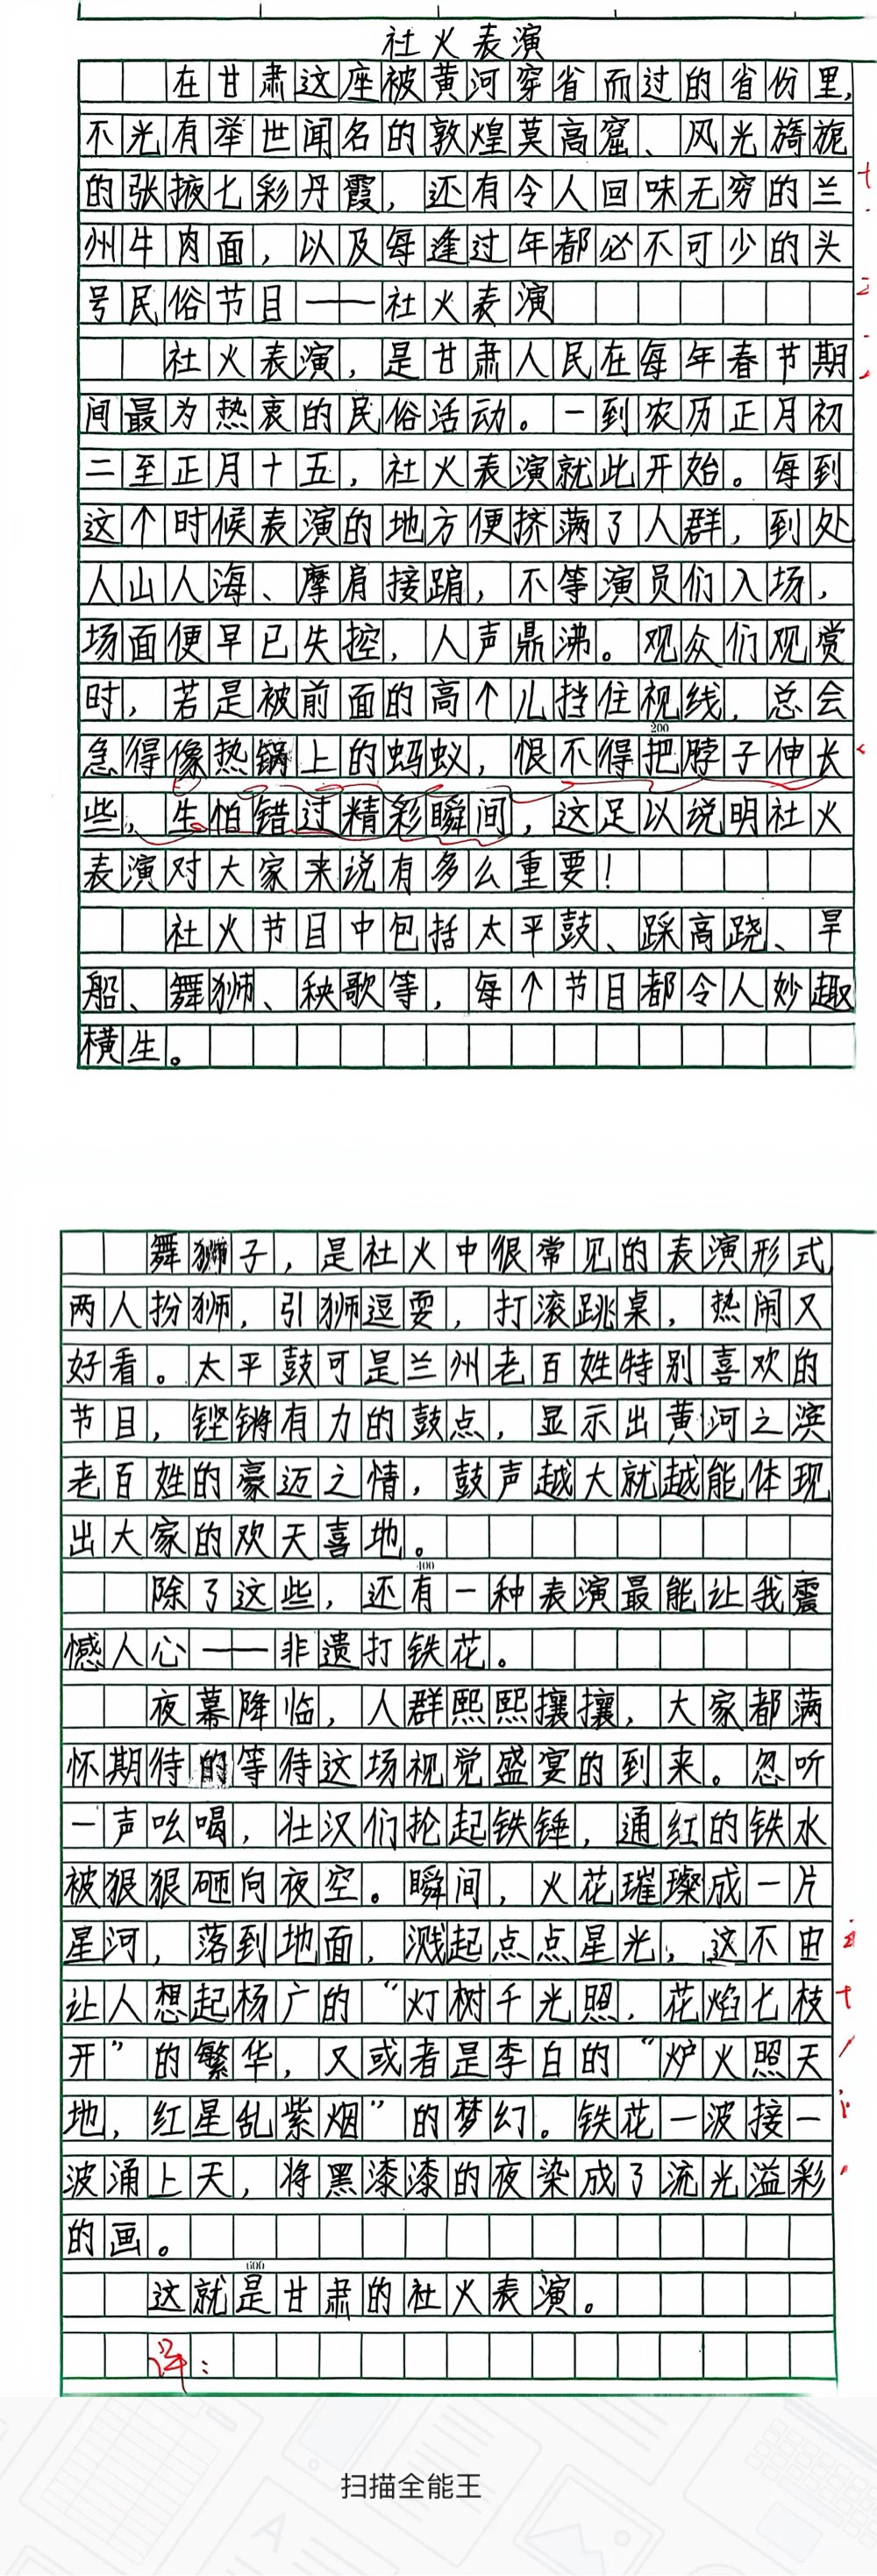 社火表演
在甘肃这座被黄河穿省而过的省份里,
不光有举世闻名的敦煌莫高窟、风光旖旎
的张掖七彩丹霞,还有令人回味无穷的兰
州牛肉面,以及每逢过年都必不可少的头
号民俗节目——社火表演
社火表演,是甘肃人民在每年春节期
间最为热衷的民俗活动。一到农历正月初
二至正月十五,社火表演就此开始。每到
这个时候表演的地方便挤满了人群,到处
人山人海、摩肩接踵,不等演员们入场,
场面便早已失控,人声鼎沸。观众们观赏
时,若是被前面的高个儿挡住视线,总会
200
急得像热锅上的蚂蚁,恨不得把脖子伸长
些,生怕错过精彩瞬间,这足以说明社火
表演对大家来说有多么重要!
社火节目中包括太平鼓、踩高跷、旱
船、舞狮、秧歌等,每个节目都令人妙趣
横生。
舞狮子,是社火中很常见的表演形式
两人扮狮,引狮逗耍,打滚跳桌,热闹又
好看。太平鼓可是兰州老百姓特别喜欢的
节目,铿锵有力的鼓点,显示出黄河之滨
老百姓的豪迈之情,鼓声越大就越能体现
出大家的欢天喜地。
400
除了这些,还有一种表演最能让我震
憾人心——非遗打铁花。
夜幕降临,人群熙熙攘攘,大家都满
怀期待的等待这场视觉盛宴的到来。忽听
一声吆喝,壮汉们抡起铁锤,通红的铁水
被狠狠砸向夜空。瞬间,火花璀璨成一片
星河,落到地面,溅起点点星光,这不由
让人想起杨广的“灯树千光照,花焰七枝
开”的繁华,又或者是李白的“炉火照天
地,红星乱紫烟”的梦幻。铁花一波接一
波涌上天,将黑漆漆的夜染成了流光溢彩
的画。
600
这就是甘肃的社火表演。
评:
扫描全能王